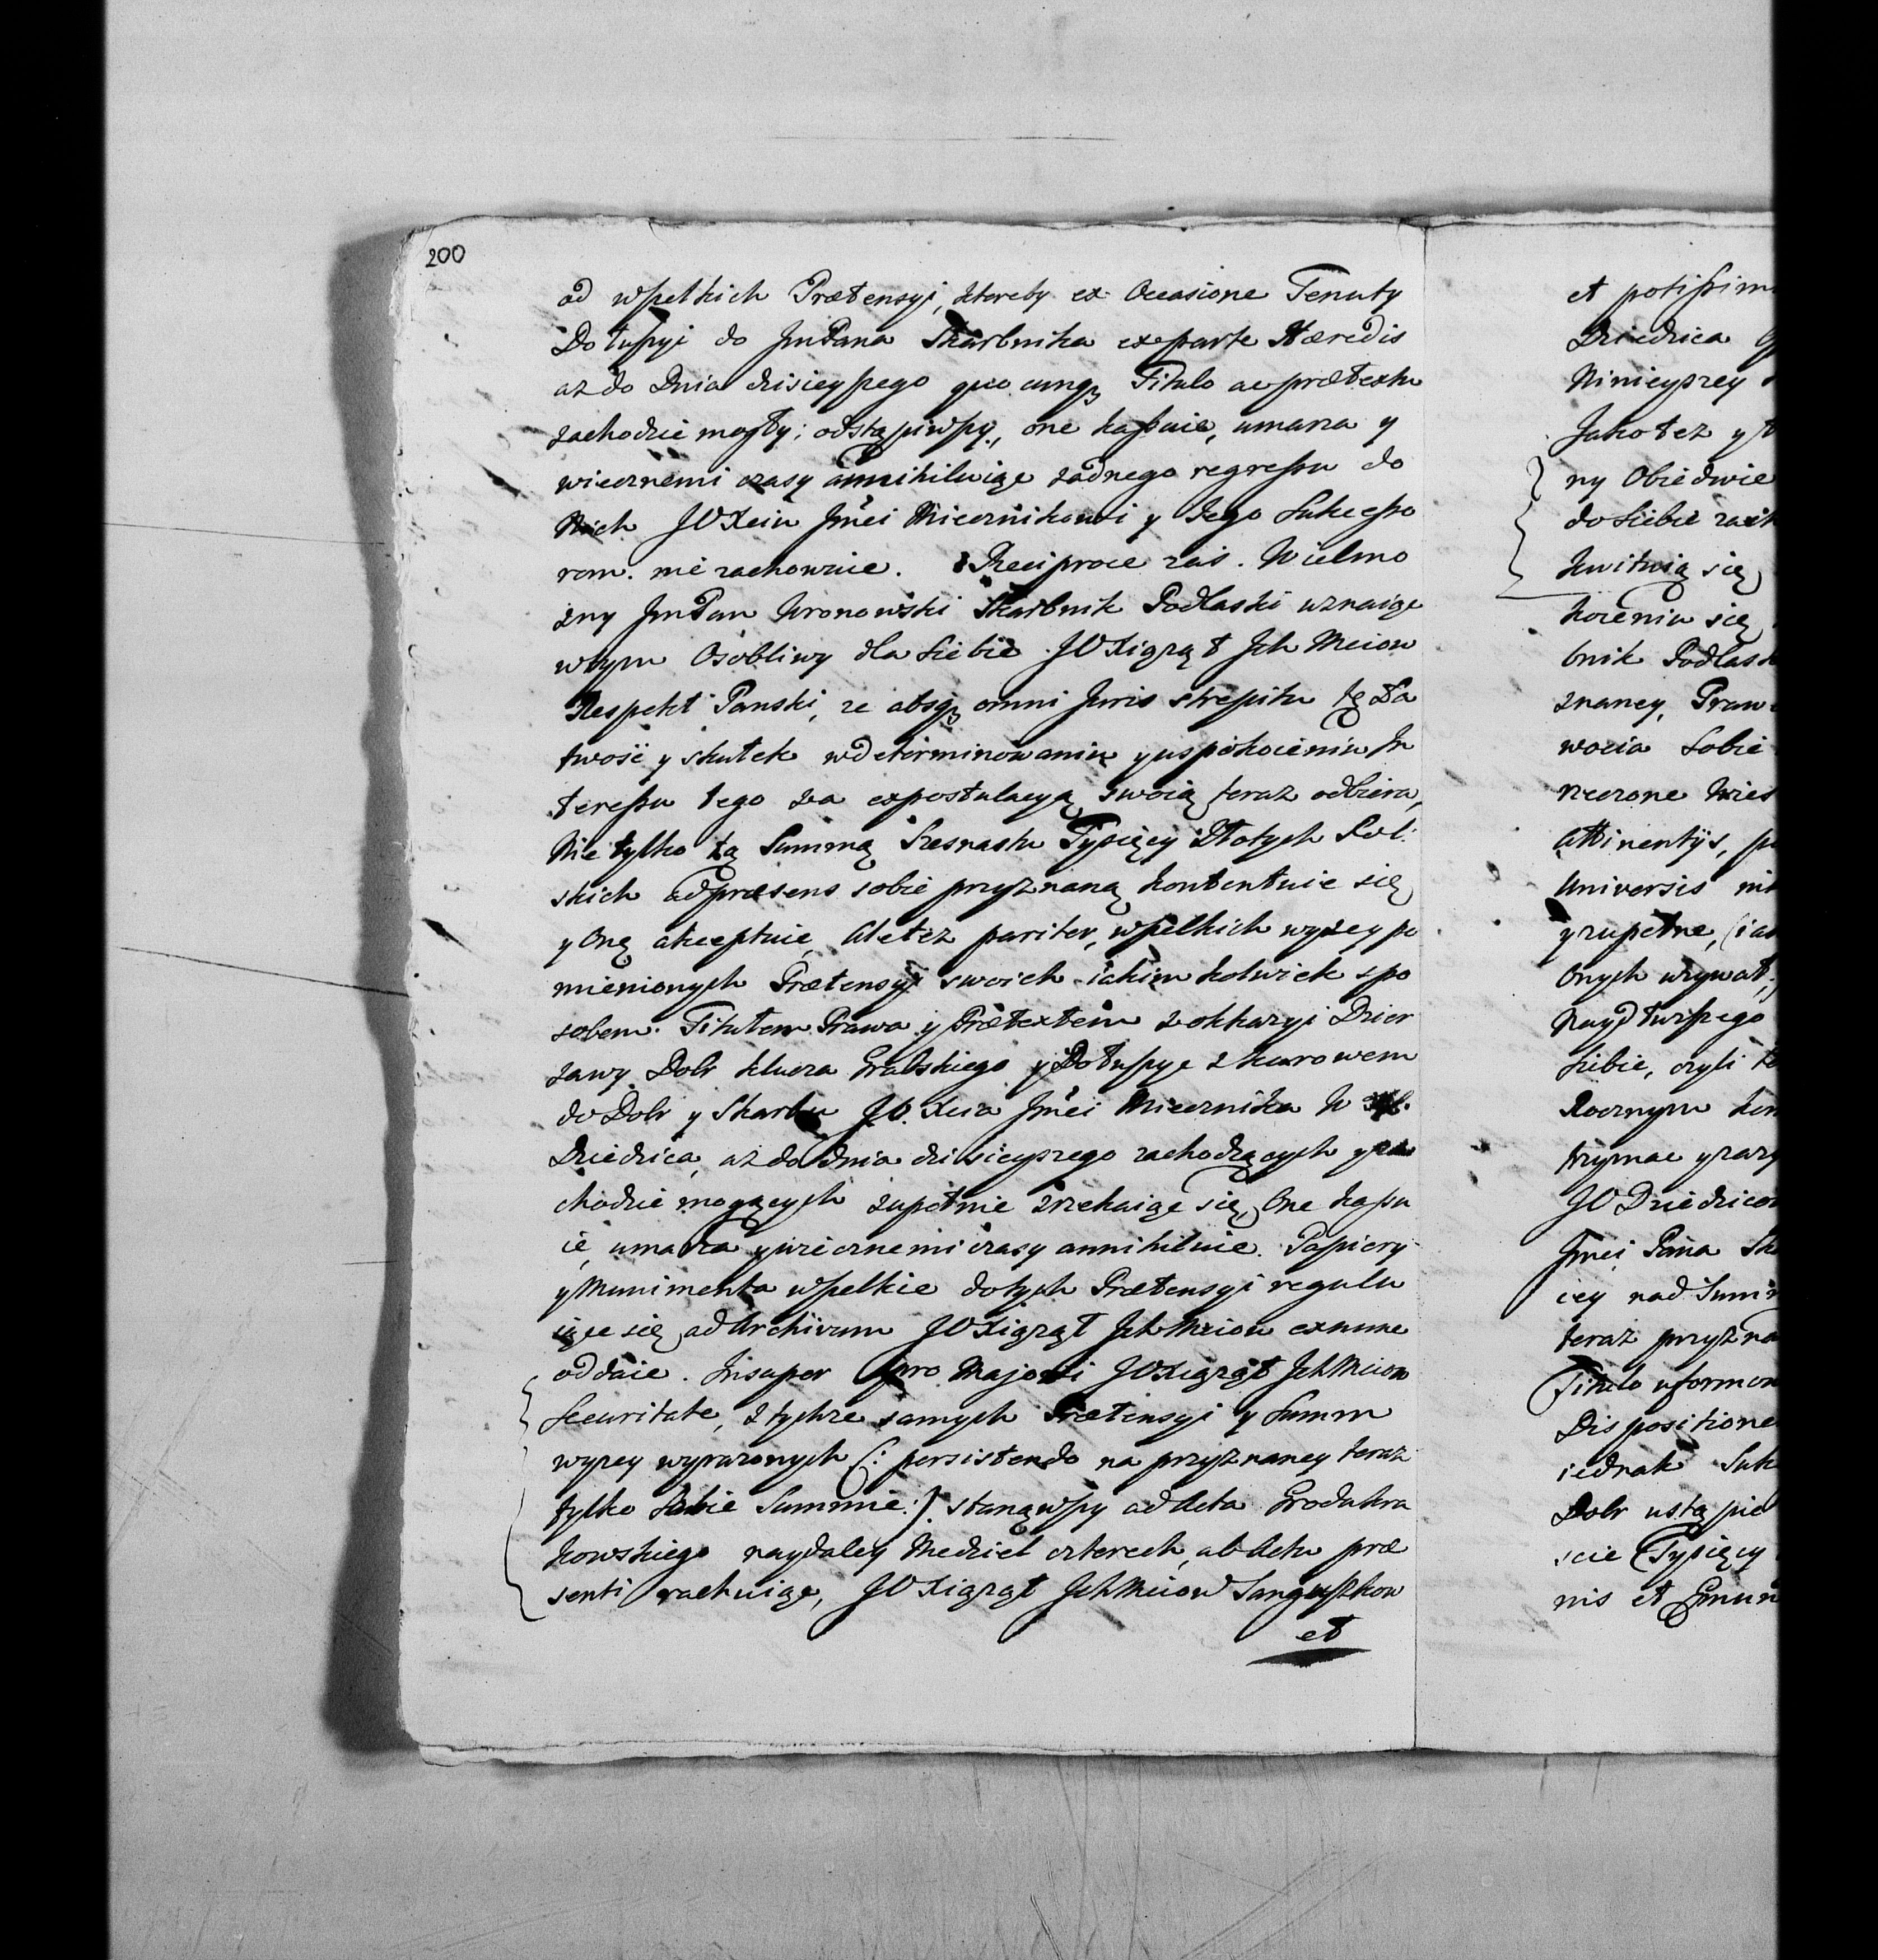 200
od wszelkich Prætensyi, ktereby ex Occasione Tenuty
Dotuszyi do JmPana Skarbnika ex parte Hæredis
az do Dnia dzisieyszego quocunq3 Titulo ac prætextu
zachodzic mogły; odstąpiwszy, one kassuie, umarza y
wiecznemi czasy annihiluiąc zadnego regressu do
Nich JO Xciu Jmci Miecznikowi y Jego Sukcesso
rom. nie zachowuie. Reciproce zas. Wielmo
zny JmPan Wronowski Skarbnik Podlaski uznaiąc
wtym Osobliwy dla Siebie JO Xiąząt Ich Mciow
Respekt Panski, ze absq3 omni Juris strepitu tę Ła
twość y skutek wdeterminowaniu y uspokoieniu In
teressu tego za expostulacyą swoią teraz odbiera,
Nie tylko tą Summą Szesnastu Tysięcy Złotych Pol:
skich ad præsens sobie przyznaną kontentuie się
y Onę akceptuie, Ale tez pariter, wszelkich wyzey po
mienionych Prætensyi swoich iakim kolwiek spo
sobem. Titułem Prawa y Prætextem z okkazyi Dzier
zawy Dobr klucza Grabskiego y Dotuszyc z Kurowem
do Dobr y Skarbu J.O. Xcia Jmci Miecznika W
Dziedzica, az do dnia dzisieyszego zachodzących y za
chodzic mogących zupełnie zrzekaiąc się, One kassu
ie, umarza y wiecznemi czasy annihiluie. Papiery
y Munimenta wszelkie do tych Prætensyi regulu
iące się ad Archivum JO Xiąząt Ich Mciow exnunc
oddaie. Insuper pro Majori JO Xiąząt Ich Mciow
Securitate, z tychze samych Prætensyi y Summ
wyzey wyrazonych (: persistendo na przyznaney teraz
tylko Sobie Summie:). stanąwszy ad Acta Grodu kra
kowskiego naydaley Niedziel czterech, ab Actu præ
senti rachuiąc, JO Xiąząt Ich Mciow Sanguszkow
et
et potissim
Dziedzica
Ninieyszey
Jakotez y
ny Obiedwie
do Siebie
kwituią się
koieniu się
bnik Podlas
znaney, Praw
wocia Sobie
rzeczone Wies
Attinentijs, p
Universis
y zupełne, (ia
Onych uzywał
Naydłuzszego
Siebie, czyli
Rocznym
trzymac y zazy
JO Dziedzico
Jmci Pana Sk
iey nad Summ
teraz przyzna
Titulo uformo
Dispositione
iednak Suk
Dobr ustąpie
scie Tysięcy
nis et